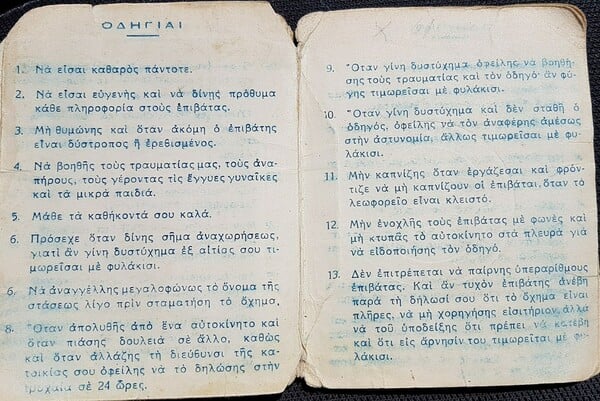 ΟΔΗΓΙΑΙ
1. Νὰ εἶσαι καθαρὸς πάντοτε.
2. Νὰ εἶσαι εὐγενὴς καὶ νὰ δίνῃς πρόθυμα
κάθε πληροφορία στοὺς ἐπιβάτας.
3. Μὴ θυμώνῃς καὶ ὅταν ἀκόμη ὁ ἐπιβάτης
εἶναι δύστροπος ἢ ἐρεθισμένος.
4. Νὰ βοηθῇς τοὺς τραυματίας μας, τοὺς ἀνα-
πήρους, τοὺς γέροντας τὶς ἔγγυες γυναῖκες
καὶ τὰ μικρὰ παιδιά.
5. Μάθε τὰ καθήκοντά σου καλά.
6. Πρόσεχε ὅταν δίνῃς σῆμα ἀναχωρήσεως,
γιατὶ ἂν γίνῃ δυστύχημα ἐξ αἰτίας σου τι-
μωρεῖσαι μὲ φυλάκισι.
6. Νὰ ἀναγγέλλῃς μεγαλοφώνως τὸ ὄνομα τῆς
στάσεως λίγο πρὶν σταματήσῃ τὸ ὄχημα.
8. Ὅταν ἀπολυθῇς ἀπὸ ἕνα αὐτοκίνητο καὶ
ὅταν πιάσῃς δουλειὰ σὲ ἄλλο, καθὼς
καὶ ὅταν ἀλλάζῃ τὴ διεύθυνσι τῆς κα-
τοικίας σου ὀφείλῃς νὰ τὸ δηλώσῃς στὴν
τροχαία σὲ 24 ὧρες.
9. Ὅταν γίνῃ δυστύχημα ὀφείλῃς νὰ βοηθή-
σῃς τοὺς τραυματίας καὶ τὸν ὁδηγό· ἂν φύ-
γῃς τιμωρεῖσαι μὲ φυλάκισι.
10. Ὅταν γίνῃ δυστύχημα καὶ δὲν σταθῇ ὁ
ὁδηγός, ὀφείλῃς νὰ τὸν ἀναφέρῃς ἀμέσως
στὴν ἀστυνομία, ἄλλως τιμωρεῖσαι μὲ φυ-
λάκισι.
11. Μὴν καπνίζῃς ὅταν ἐργάζεσαι καὶ φρόν-
τιζε νὰ μὴ καπνίζουν οἱ ἐπιβάται, ὅταν τὸ
λεωφορεῖο εἶναι κλειστό.
12. Μὴν ἐνοχλῇς τοὺς ἐπιβάτας μὲ φωνὲς καὶ
μὴ κτυπᾷς τὸ αὐτοκίνητο στὰ πλευρὰ γιὰ
νὰ εἰδοποιήσῃς τὸν ὁδηγό.
13. Δὲν ἐπιτρέπεται νὰ παίρνῃς ὑπεραρίθμους
ἐπιβάτας. Καὶ ἂν τυχὸν ἐπιβάτης ἀνέβῃ
παρὰ τὴ δήλωσί σου ὅτι τὸ ὄχημα εἶναι
πλῆρες, νὰ μὴ χορηγήσῃς εἰσιτήριον, ἀλλὰ
νὰ τοῦ ὑποδείξῃς ὅτι πρέπει νὰ κατέβῃ
καὶ ὅτι εἰς ἄρνησίν του τιμωρεῖται μὲ φυ-
λάκισι.